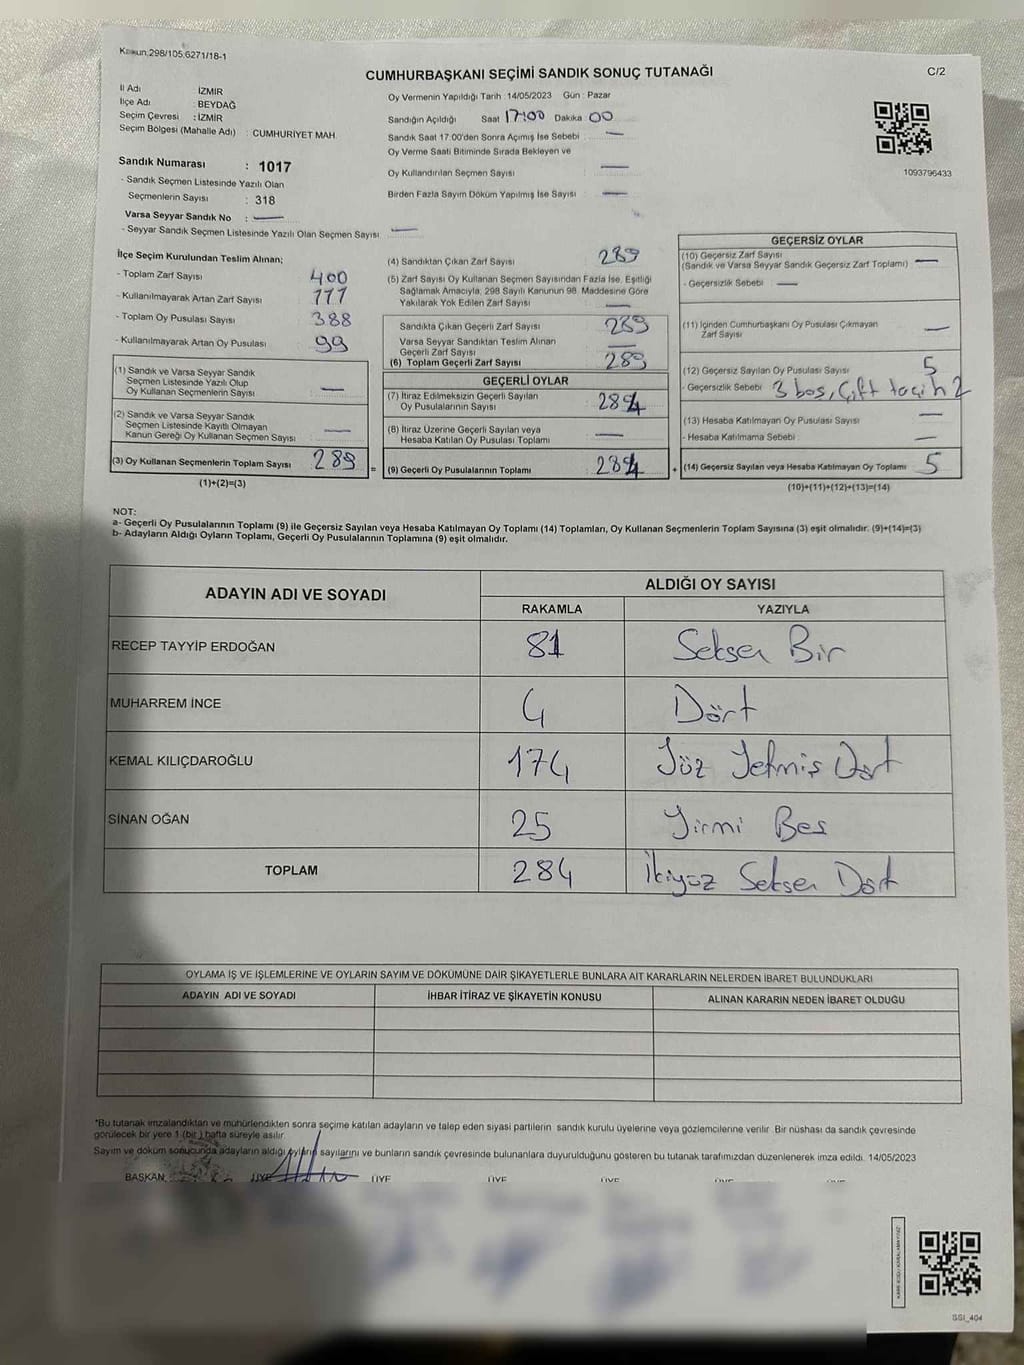 Kanun:298/105.6271/18-1
CUMHURBAŞKANI SEÇİMİ SANDIK SONUÇ TUTANAĞI
C/2
İl Adı İZMİR
İlçe Adı BEYDAĞ
Seçim Çevresi : İZMİR
Seçim Bölgesi (Mahalle Adı) : CUMHURİYET MAH.
Sandık Numarası : 1017
- Sandık Seçmen Listesinde Yazılı Olan
Seçmenlerin Sayısı : 318
Varsa Seyyar Sandık No : —
- Seyyar Sandık Seçmen Listesinde Yazılı Olan Seçmen Sayısı —
Oy Vermenin Yapıldığı Tarih : 14/05/2023 Gün : Pazar
Sandığın Açıldığı Saat 17:00 Dakika 00
Sandık Saat 17:00'den Sonra Açılmış İse Sebebi : —
Oy Verme Saati Bitiminde Sırada Bekleyen ve
Oy Kullandırılan Seçmen Sayısı : —
Birden Fazla Sayım Döküm Yapılmış İse Sayısı : —
1093796433
İlçe Seçim Kurulundan Teslim Alınan;
- Toplam Zarf Sayısı : 400
- Kullanılmayarak Artan Zarf Sayısı : 111
- Toplam Oy Pusulası Sayısı : 388
- Kullanılmayarak Artan Oy Pusulası : 99
(1) Sandık ve Varsa Seyyar Sandık
Seçmen Listesinde Yazılı Olup
Oy Kullanan Seçmenlerin Sayısı : —
(2) Sandık ve Varsa Seyyar Sandık
Seçmen Listesinde Kayıtlı Olmayan
Kanun Gereği Oy Kullanan Seçmen Sayısı : —
(3) Oy Kullanan Seçmenlerin Toplam Sayısı : 289
(1)+(2)=(3)
(4) Sandıktan Çıkan Zarf Sayısı : 289
(5) Zarf Sayısı Oy Kullanan Seçmen Sayısından Fazla İse, Eşitliği
Sağlamak Amacıyla, 298 Sayılı Kanunun 98. Maddesine Göre
Yakılarak Yok Edilen Zarf Sayısı : —
Sandıkta Çıkan Geçerli Zarf Sayısı : 289
Varsa Seyyar Sandıktan Teslim Alınan
Geçerli Zarf Sayısı : —
(6) Toplam Geçerli Zarf Sayısı : 289
GEÇERLİ OYLAR
(7) İtiraz Edilmeksizin Geçerli Sayılan
Oy Pusulalarının Sayısı : 284
(8) İtiraz Üzerine Geçerli Sayılan veya
Hesaba Katılan Oy Pusulası Toplamı : —
= (9) Geçerli Oy Pusulalarının Toplamı : 284 +
GEÇERSİZ OYLAR
(10) Geçersiz Zarf Sayısı
(Sandık ve Varsa Seyyar Sandık Geçersiz Zarf Toplamı) : —
- Geçersizlik Sebebi : —
(11) İçinden Cumhurbaşkanı Oy Pusulası Çıkmayan
Zarf Sayısı : —
(12) Geçersiz Sayılan Oy Pusulası Sayısı : 5
- Geçersizlik Sebebi : 3 boş, Çift tercih 2
(13) Hesaba Katılmayan Oy Pusulası Sayısı : —
- Hesaba Katılmama Sebebi : —
(14) Geçersiz Sayılan veya Hesaba Katılmayan Oy Toplamı : 5
(10)+(11)+(12)+(13)=(14)
NOT:
a- Geçerli Oy Pusulalarının Toplamı (9) ile Geçersiz Sayılan veya Hesaba Katılmayan Oy Toplamı (14) Toplamları, Oy Kullanan Seçmenlerin Toplam Sayısına (3) eşit olmalıdır. (9)+(14)=(3)
b- Adayların Aldığı Oyların Toplamı, Geçerli Oy Pusulalarının Toplamına (9) eşit olmalıdır.
ADAYIN ADI VE SOYADI ALDIĞI OY SAYISI
RAKAMLA YAZIYLA
RECEP TAYYİP ERDOĞAN 81 Seksen Bir
MUHARREM İNCE 4 Dört
KEMAL KILIÇDAROĞLU 174 Yüz Yetmiş Dört
SİNAN OĞAN 25 Yirmi Beş
TOPLAM 284 İkiyüz Seksen Dört
OYLAMA İŞ VE İŞLEMLERİNE VE OYLARIN SAYIM VE DÖKÜMÜNE DAİR ŞİKAYETLERLE BUNLARA AİT KARARLARIN NELERDEN İBARET BULUNDUKLARI
ADAYIN ADI VE SOYADI İHBAR İTİRAZ VE ŞİKAYETİN KONUSU ALINAN KARARIN NEDEN İBARET OLDUĞU
*Bu tutanak imzalandıktan ve mühürlendikten sonra seçime katılan adayların ve talep eden siyasi partilerin sandık kurulu üyelerine veya gözlemcilerine verilir. Bir nüshası da sandık çevresinde
görülecek bir yere 1 (bir) hafta süreyle asılır.
Sayım ve döküm sonucunda adayların aldığı oyların sayılarını ve bunların sandık çevresinde bulunanlara duyurulduğunu gösteren bu tutanak tarafımızdan düzenlenerek imza edildi. 14/05/2023
BAŞKAN ÜYE ÜYE ÜYE ÜYE ÜYE
SSI_404